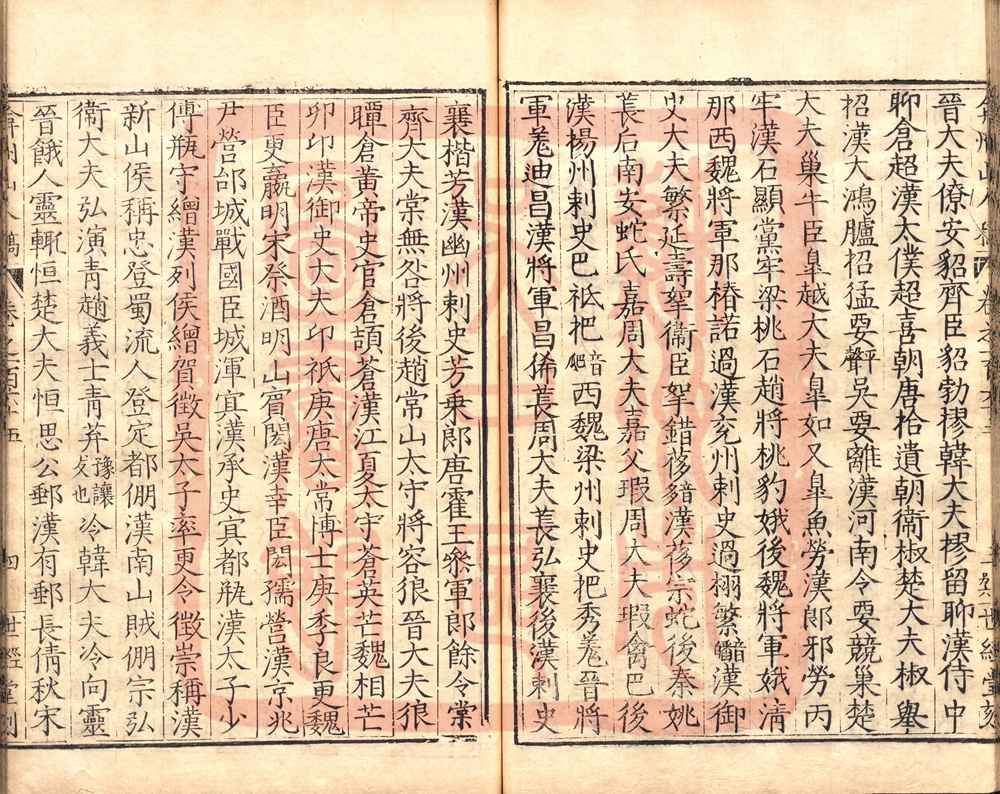 晉大夫僚安貂齊臣貂勃樛韓大夫樛留聊漢侍中
聊倉超漢太僕超喜朝唐拾遺朝衞椒楚大夫椒舉
招漢大鴻臚招猛要吳要離漢河南令要競巢楚
大夫巢牛臣皐越大夫皐如又皐魚勞漢郎邪勞丙
牢漢石顯黨牢梁桃石趙將桃豹娥後魏將軍娥清
那西魏將軍那椿諾過漢兖州刺史過栩繁音漢御
史大夫繁延壽挐衞臣挐錯蛇後秦姚
萇后南安蛇氏嘉周大夫嘉父瑕周大夫瑕禽巴後
漢楊州刺史巴祇祀音西魏梁州刺史把秀卷晉將
軍卷迪昌漢將軍昌狶萇周大夫萇弘襄後漢刺史
襄楷芳漢幽州刺史芳乗郞唐霍王叅軍郎餘令棠
齊大夫棠無咎將後趙常山太守將容狼晉大夫狼
瞫倉黃帝史官倉頡蒼漢江夏太守蒼英芒魏相芒
卯卬漢御史大夫卬祇庚唐太常博士庚季良更魏
臣更羸明宋祭酒明山賓閎漢幸臣閎孺營漢京兆
尹營郃城戰國臣城渾宜漢承史宜都瓶漢太子少
傅瓶守繒漢列侯繒賀徵吳太子率更令徵崇稱漢
新山侯稱忠登蜀流人登定都倗漢南山賊倗宗弘
衞大夫弘演青趙義士青荓豫讓友也冷韓大夫冷向靈
晉餓人靈輒恒楚大夫恒思公郵漢有郵長倩秋宋
弇州山人稿 卷之一百六十五 四 世經堂刻